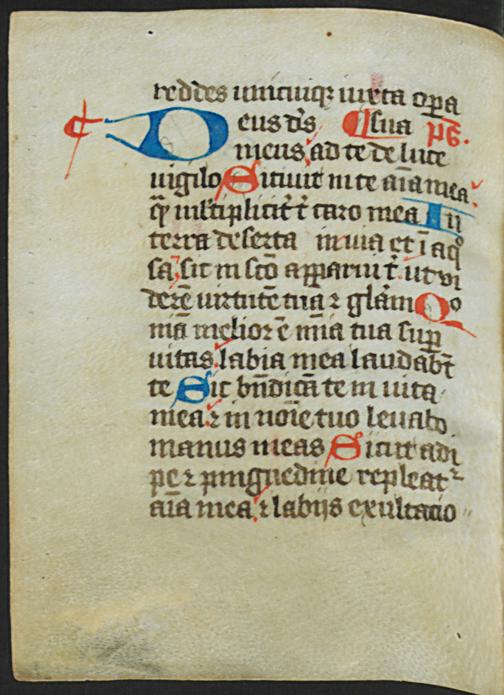 reddes unicuiq; iuxta op̄a
Deus d̄s ¶sua ps̄.
meus, ad te de luce
vigilo Sitiuit in te aīa mea,
q̄ multiplicit̄ t̄ caro mea In
terra deserta inuia et ī aqͦ
sa, sic in sc̄o apparui t̄. ut vi
derē uirtutē tuā ⁊ glām Qͦo
niā melior ē mīa tua sup̄
uitas, labia mea laudabt̄
te Sic bn̄dicā te in uita
mea, ⁊ in noīe tuo leuabo
manus meas Sicut adi
pe ⁊ pinguedine repleat᷑
aīa mea, ⁊ labijs exultatio